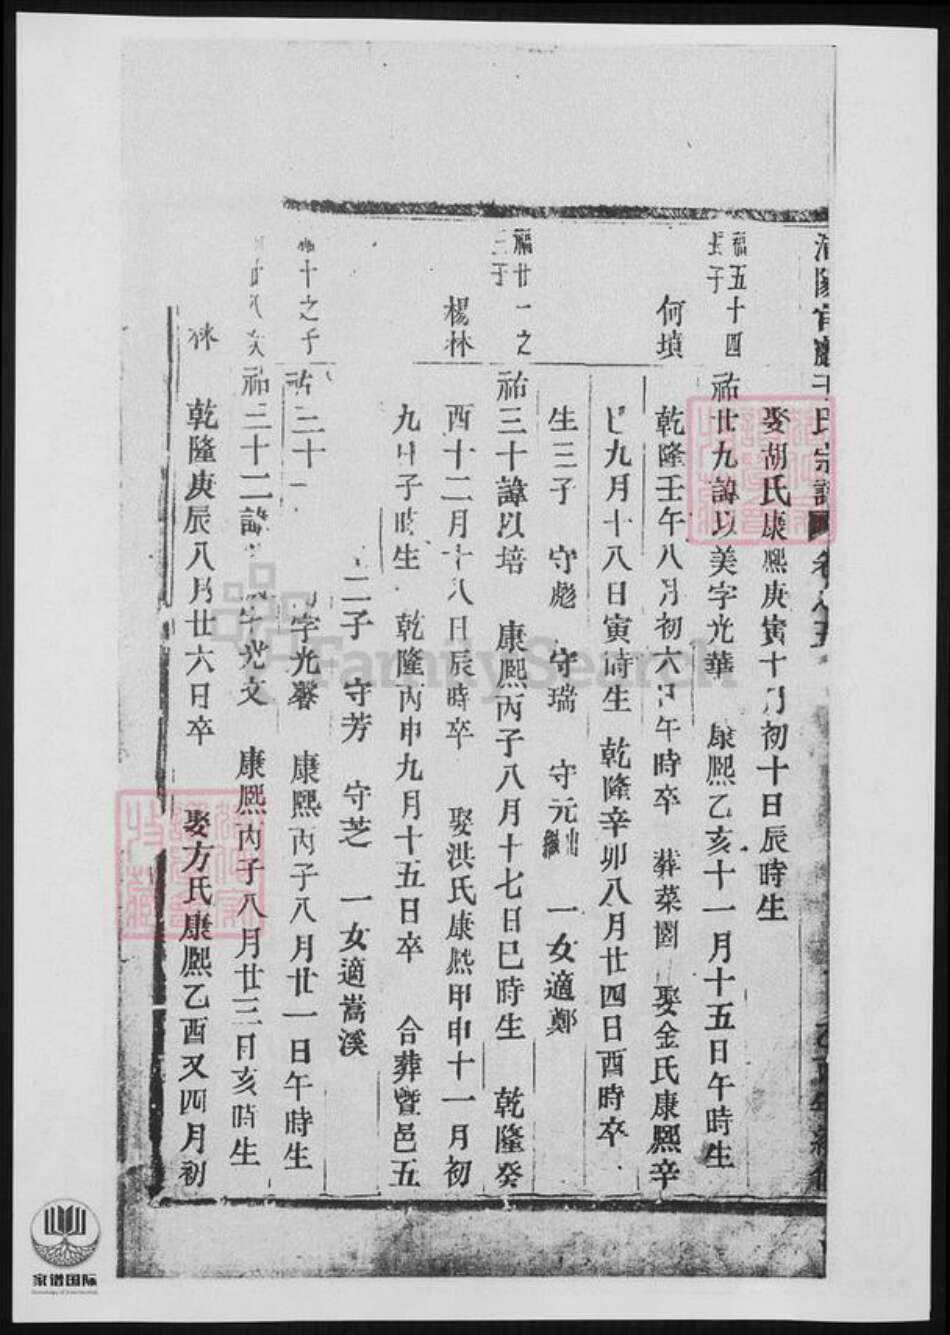 氏宗譜 卷
娶胡氏康熙庚寅十月初十日辰時生
福五十四
長子
祐廿九諱以美字光華 康熙乙亥十一月十五日午時生
何墳
乾隆壬午八月初六日午時卒 葬菜園 娶金氏康熙辛
巳九月十八日寅時生 乾隆辛卯八月廿四日酉時卒
生三子 守彪 守瑞 守元出繼 一女適鄭
福廿一之
三子
祐三十諱以培 康熙丙子八月十七日巳時生 乾隆癸
楊林
酉十二月十八日辰時卒 娶洪氏康熙甲申十一月初
九日子時生 乾隆丙申九月十五日卒 合葬暨邑五
二子 守芳 守芝 一女適嵩溪
十之子
祐三十一 字光馨 康熙丙子八月廿一日午時生
祐三十二諱 字光文 康熙丙子八月廿三日亥時生
乾隆庚辰八月廿六日卒 娶方氏康熙乙酉又四月初
FamilySearch
家谱国际